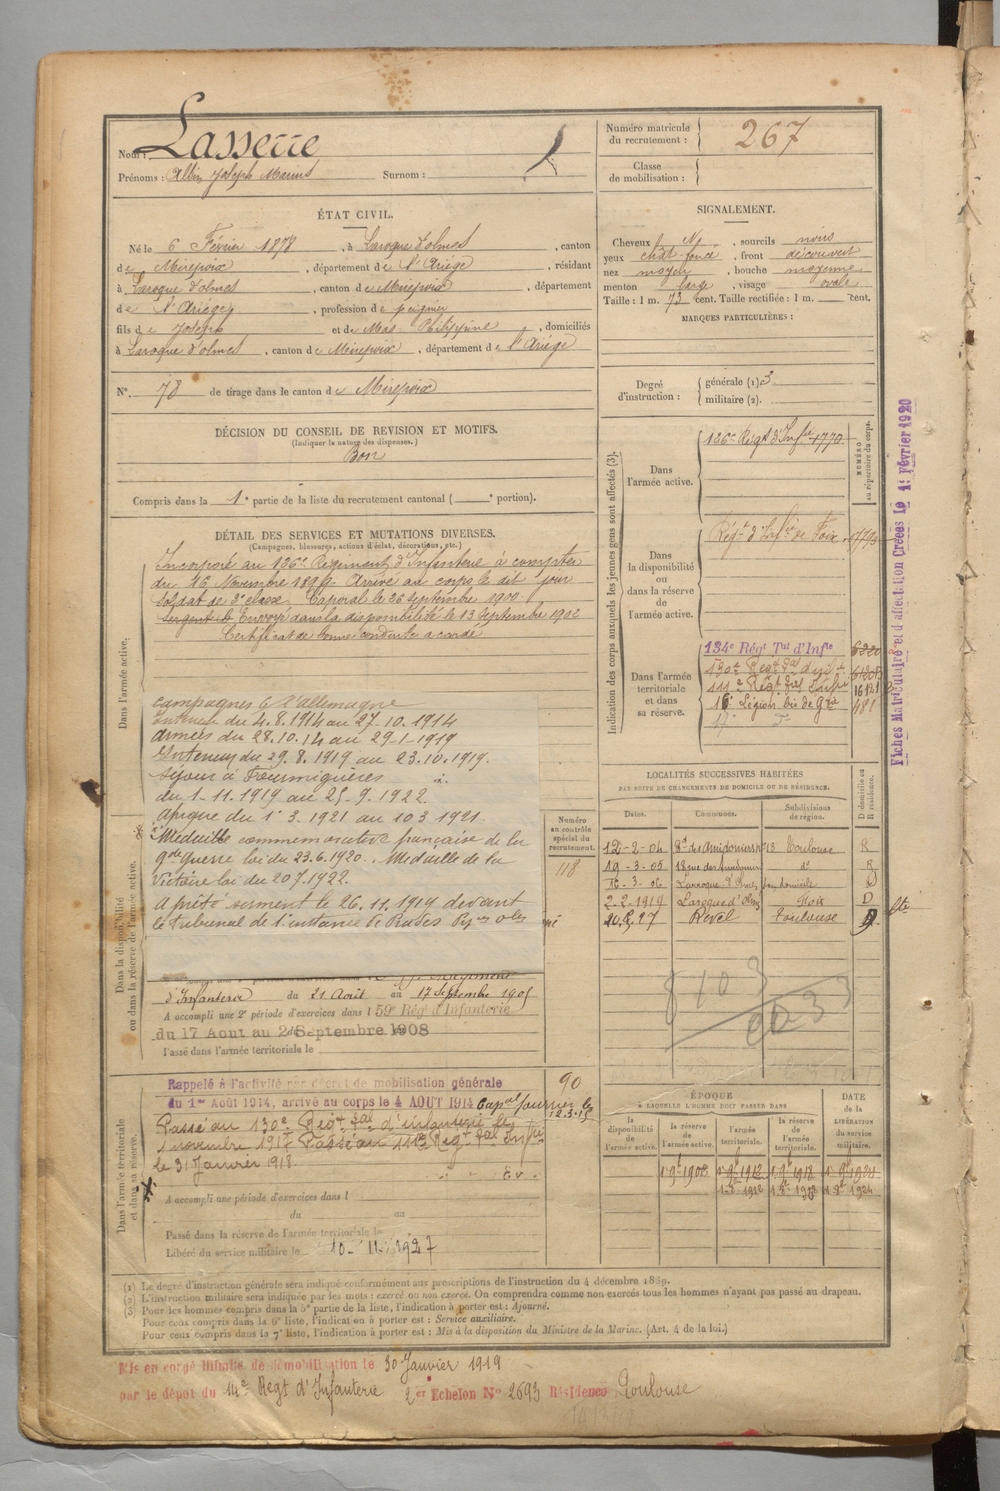 Nom : Lasserre
Prénoms : Albin Joseph Marius Surnom :
Numéro matricule du recrutement : 267
Classe de mobilisation :
ÉTAT CIVIL.
Né le 6 Février 1878, à Laroque d'olmes, canton
de Mirepoix, département de l'Ariège, résidant
à Laroque d'olmes, canton de Mirepoix, département
de l'Ariège, profession de peigneur
fils de Joseph et de Mas Philippine, domiciliés
à Laroque d'olmes, canton de Mirepoix, département de l'Ariège
N° 78 de tirage dans le canton de Mirepoix
SIGNALEMENT.
Cheveux N, sourcils noirs
yeux chât foncé, front découvert
nez moyen, bouche moyenne
menton large, visage ovale
Taille : 1 m. 73 cent. Taille rectifiée : 1 m. cent.
MARQUES PARTICULIÈRES :
Degré d'instruction : générale (1) 3
militaire (2).
DÉCISION DU CONSEIL DE REVISION ET MOTIFS.
(Indiquer la nature des dispenses.)
Bon
Compris dans la 1e partie de la liste du recrutement cantonal ( e portion).
DÉTAIL DES SERVICES ET MUTATIONS DIVERSES.
(Campagnes, blessures, actions d'éclat, décorations, etc.)
Dans l'armée active.
Incorporé au 126e Régiment d'Infanterie à compter
du 16 Novembre 1899. Arrivé au corps le dit jour
soldat de 2e classe. Caporal le 26 Septembre 1900.
Envoyé dans la disponibilité le 13 Septembre 1902
Certificat de bonne conduite accordé
campagnes c/ l'allemagne
Intérieur du 4.8.1914 au 27.10.1914
armées du 28.10.14 au 29-1-1919
Intérieur du 29.8.1919 au 23.10.1919.
Séjour à Fourmiguères
du 1-11.1919 au 25-9.1922.
afrique du 1er 3.1921 au 10 3 1921.
Médaille commémorative française de la
gde guerre loi du 23.6.1920. Médaille de la
Victoire loi du 20 7.1922.
A prêté serment le 26.11.1919 devant
le tribunal de 1e instance de Prades
Dans la disponibilité ou dans la réserve de l'armée active.
d'Infanterie du 21 Août au 17 Septembre 1905
A accompli une 2e période d'exercices dans l 59e Rég d'Infanterie
du 17 Aout au Septembre 1908
Passé dans l'armée territoriale le
Dans l'armée territoriale et dans sa réserve.
Rappelé à l'activité par décret de mobilisation générale
du 1er Août 1914, arrivé au corps le 4 AOUT 1914 Capal fourrier le
12.3.15
Passé au 130e Régt tal d'infanterie le
1 novembre 1917 Passé au 111e Regt tal Infie
le 31 Janvier 1918.
A accompli une période d'exercices dans l
du au
Passé dans la réserve de l'armée territoriale le
Libéré du service militaire le 10 - 11 - 1927
Numéro au contrôle spécial du recrutement.
118
90
Indication des corps auxquels les jeunes gens sont affectés (3).
NUMÉRO au répertoire du corps.
Dans l'armée active. 126e Régt d'Infie 1770
Dans la disponibilité ou dans la réserve de l'armée active. Régt d'Infie de Foix
Dans l'armée territoriale et dans sa réserve.
134e Régt Tal d'Infie
130e Régt tal
111e Régt tal Infie 16121
16e Légion bis de Gie 481
LOCALITÉS SUCCESSIVES HABITÉES
PAR SUITE DE CHANGEMENTS DE DOMICILE OU DE RÉSIDENCE.
Dates. Communes. Subdivisions de région. D domicile ou R résidence.
12-2-04 Toulouse R
19-3-05 do R
16-3-06 Larroque d'Olmes D
2-2-1919 Laroque d'Olmes Foix D
Revel toulouse D
ÉPOQUE
A LAQUELLE L'HOMME DOIT PASSER DANS
la disponibilité de l'armée active. la réserve de l'armée active. l'armée territoriale. la réserve de l'armée territoriale.
DATE de la LIBÉRATION du service militaire.
Fiches Matriculaire et d'affectation Créées le 1er Février 1920
(1) Le degré d'instruction générale sera indiqué conformément aux prescriptions de l'instruction du 4 décembre 1889.
(2) L'instruction militaire sera indiquée par les mots : exercé ou non exercé. On comprendra comme non exercés tous les hommes n'ayant pas passé au drapeau.
(3) Pour les hommes compris dans la 5e partie de la liste, l'indication à porter est : Ajourné.
Pour ceux compris dans la 6e liste, l'indication à porter est : Service auxiliaire.
Pour ceux compris dans la 7e liste, l'indication à porter est : Mis à la disposition du Ministre de la Marine. (Art. 4 de la loi.)
Mis en congé illimité de démobilisation le 30 Janvier 1919
par le dépôt du 14e Régt d'Infanterie 2er Echelon N° 2693 Résidence Toulouse